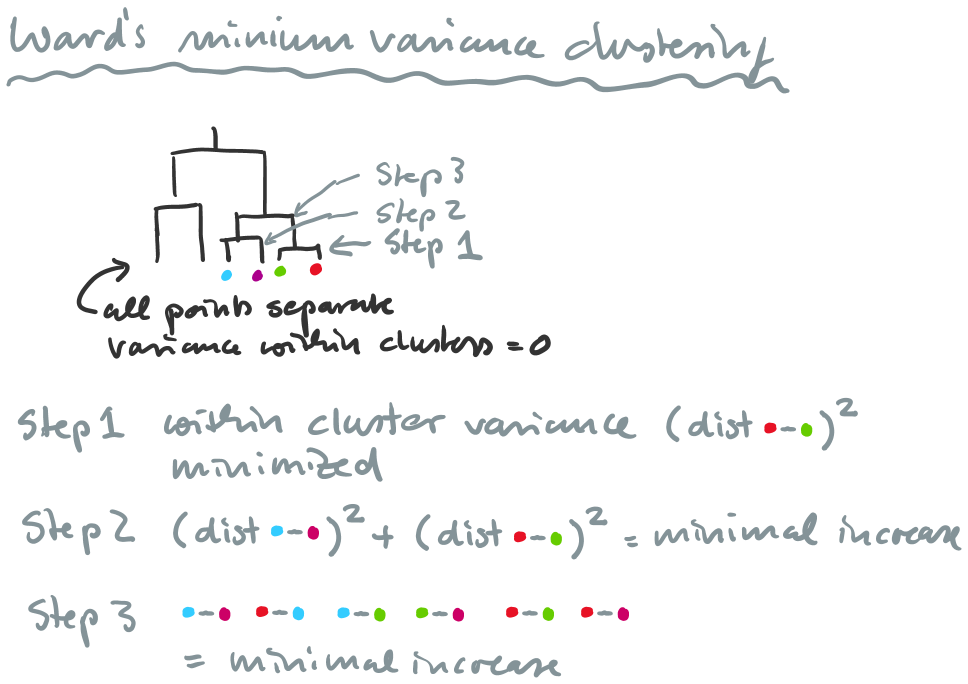 Ward's minium variance clustering
Step 3
Step 2
Step 1
all points separate
variance within clusters = 0
Step 1 within cluster variance (dist - )²
minimized
Step 2 (dist - )² + (dist - )² = minimal increase
Step 3 - - - - - -
= minimal increase